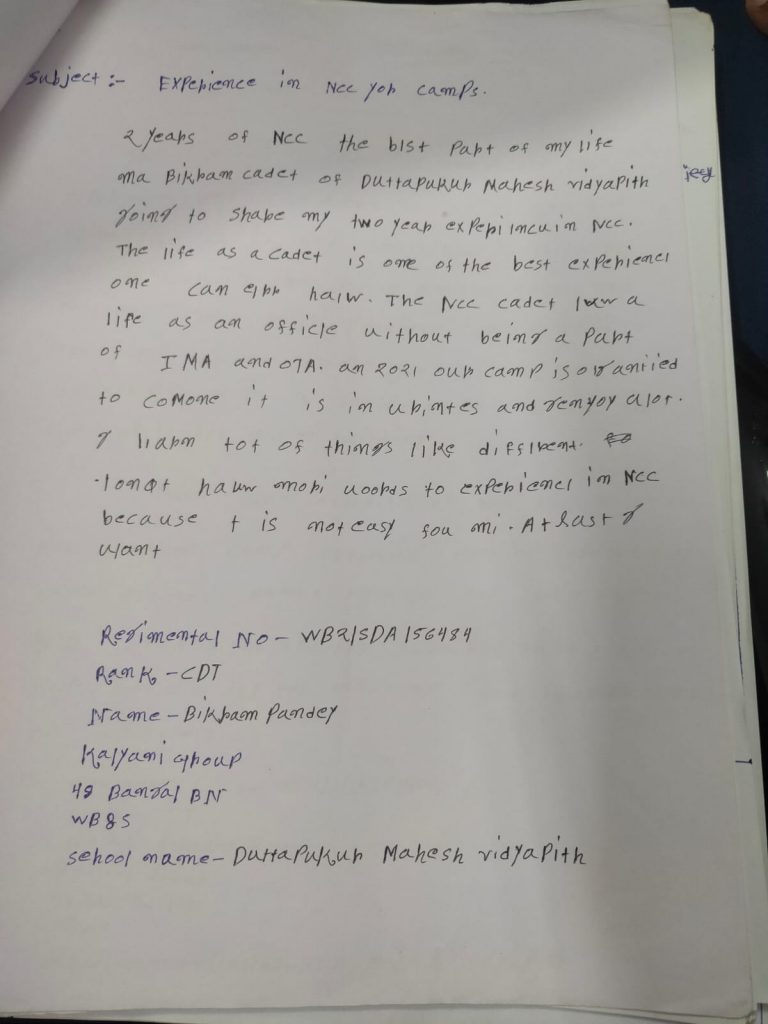 Subject :- Experience in Ncc yor camps.
2 years of Ncc the bist Part of my life
jeey
ma Bikram cadet of Duttapukur Mahesh vidyapith
going to shape my two year experiincu in Ncc.
The life as a cadet is one of the best experienci
one can halw. The Ncc cadet a
life as an officle without being a Part
of IMA and OTA. an 2021 our camp is
to comone it is in and alot.
I liarn tot of things like
hauw mori uoords to experienci in Ncc
because t is not easy fou mi. At last I
want
Regimental No - WB21SDA156484
Rank - CDT
Name - Bikram Pandey
Kalyani Group
48 Bangal BN
WB&S
School name - Duttapukur Mahesh vidyapith